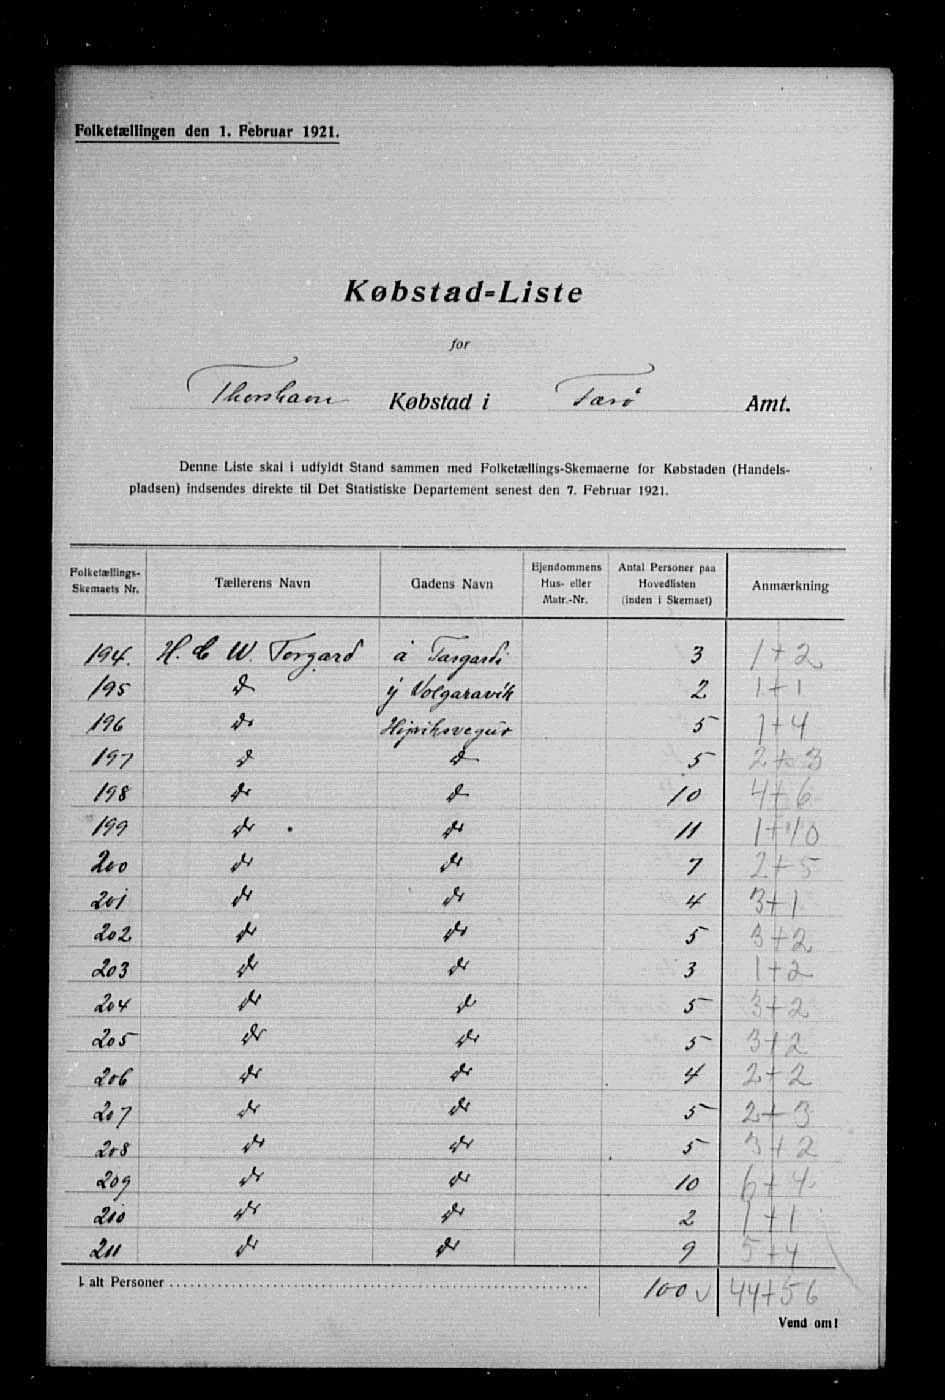 Folketællingen den 1. Februar 1921.
Købstad-Liste
for
Thorshavn Købstad i Færø Amt.
Denne Liste skal i udfyldt Stand sammen med Folketællings-Skemaerne for Købstaden (Handels-
pladsen) indsendes direkte til Det Statistiske Departement senest den 7. Februar 1921.
Folketællings-Skemaets Nr. Tællerens Navn Gadens Navn Ejendommens Hus- eller Matr.-Nr. Antal Personer paa Hovedlisten (inden i Skemaet) Anmærkning
194. H. C W. Torgard á 3 1+2
195 do 2 1+1
196 do 5 1+4
197 do do 5 2+3
198 do do 10 4+6
199 do do 11 1+10
200 do do 7 2+5
201 do do 4 3+1
202 do do 5 3+2
203 do do 3 1+2
204 do do 5 3+2
205 do do 5 3+2
206 do do 4 2+2
207 do do 5 2+3
208 do do 5 3+2
209 do do 10 6+4
210 do do 2 1+1
211 do do 9 5+4
I alt Personer 100 44+56
Vend om!